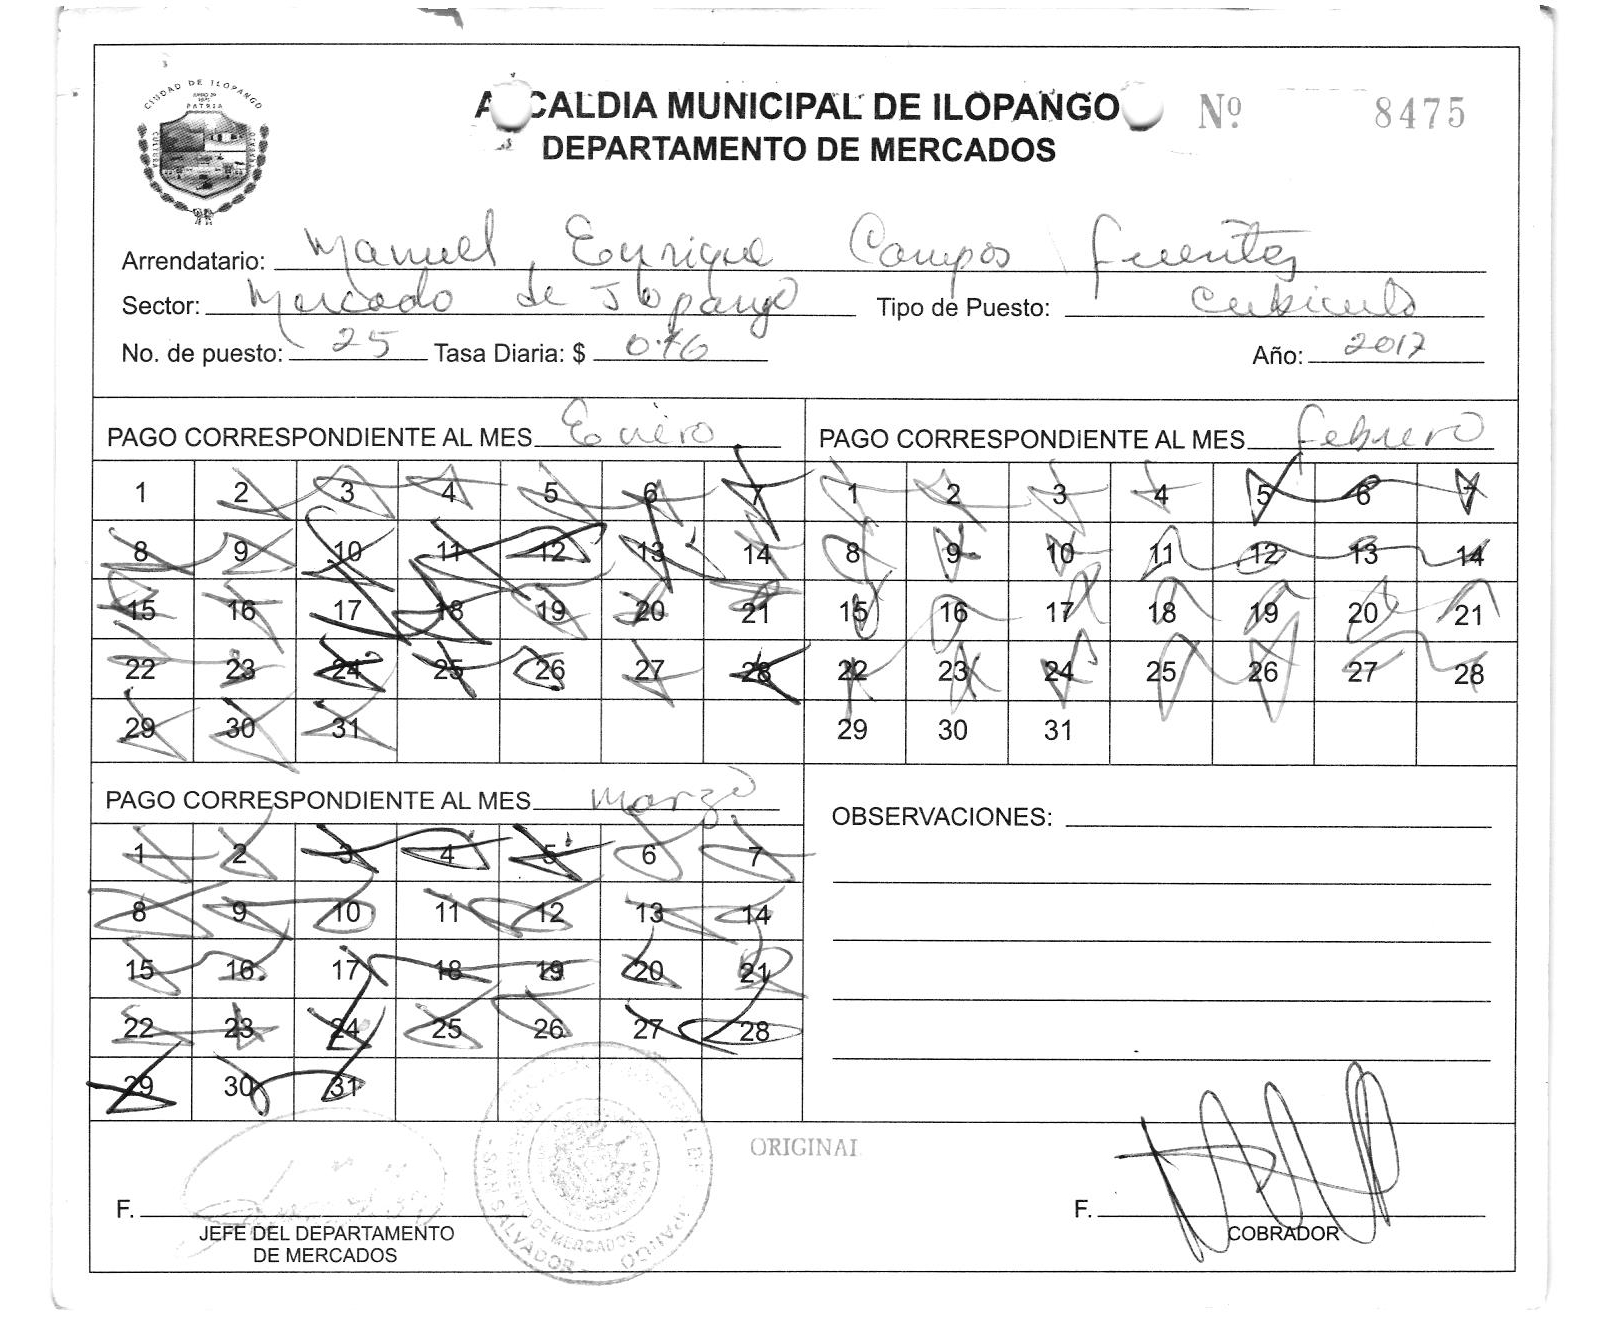 CIUDAD DE ILOPANGO
PATRIA
CULTURA
ALCALDIA MUNICIPAL DE ILOPANGO
Nº 8475
DEPARTAMENTO DE MERCADOS
Arrendatario: Manuel Enrique Campos Fuentes
Sector: Mercado de Ilopango Tipo de Puesto: Cubiculo
No. de puesto: 25 Tasa Diaria: $ Año: 2017
PAGO CORRESPONDIENTE AL MES Enero
1 2 3 4 5 6 7
8 9 10 11 12 13 14
15 16 17 18 19 20 21
22 23 24 25 26 27 28
29 30 31
PAGO CORRESPONDIENTE AL MES Febrero
1 2 3 4 5 6 7
8 9 10 11 12 13 14
15 16 17 18 19 20 21
22 23 24 25 26 27 28
29 30 31
PAGO CORRESPONDIENTE AL MES Marzo
1 2 3 4 5 6 7
8 9 10 11 12 13 14
15 16 17 18 19 20 21
22 23 24 25 26 27 28
29 30 31
OBSERVACIONES:
ORIGINAL
F.
JEFE DEL DEPARTAMENTO
DE MERCADOS
DE MERCADOS
SAN SALVADOR
F.
COBRADOR